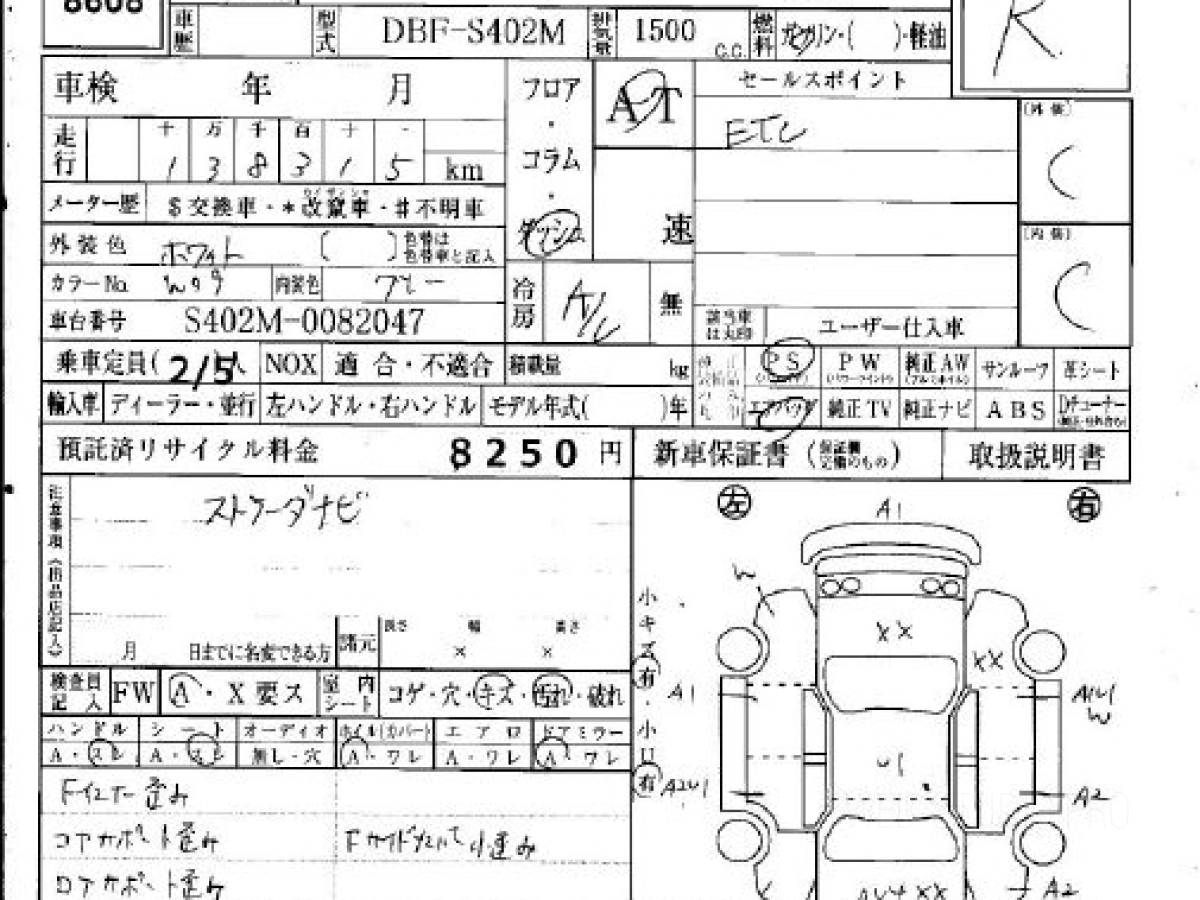 8608
車歴
型式 DBF-S402M 排気量 1500 C.C. 燃料 ガソリン・( )・軽油
R
車検 年 月
フロア・コラム・ダッシュ
AT
速
セールスポイント
ETC
(外装)
C
走行 十 万 千 百 十 -
1 3 8 3 1 5 km
メーター歴 $交換車・*改竄車・#不明車
カイザンシャ
(内装)
C
外装色 ホワイト ( ) 色替は色替車と記入
カラーNo. W09 内装色 グレー
冷房 A/C 無
車台番号 S402M-0082047
該当車は丸印 ユーザー仕入車
乗車定員( 2/5人 NOX 適合・不適合 積載量 kg
PS PW 純正AW サンルーフ 革シート
(パワーウインド) (アルミホイル)
輸入車 ディーラー・並行 左ハンドル・右ハンドル モデル年式( )年
エアバッグ 純正TV 純正ナビ ABS Dチューナー
預託済リサイクル料金 8250 円
新車保証書 (保証欄完備のもの) 取扱説明書
注意事項《出品店記入》
ストラーダナビ
左 A1 右
月 日までに名変できる方 諸元 長さ × 幅 × 高さ
検査員記入 FW A・X要ス 室内シート コゲ・穴・キズ・汚れ・破れ
ハンドル シート オーディオ ホイル(カバー) エアロ ドアミラー
A・スレ A・スレ 無し・穴 A・ワレ A・ワレ A・ワレ
小キズ有・小凹有
W
XX
XX
A1
A1U1
W
U1
A2U1
A2
Fインナー歪み
コアサポート歪み Fサイドメンバー小歪み
ロアサポート歪み
XX
A2